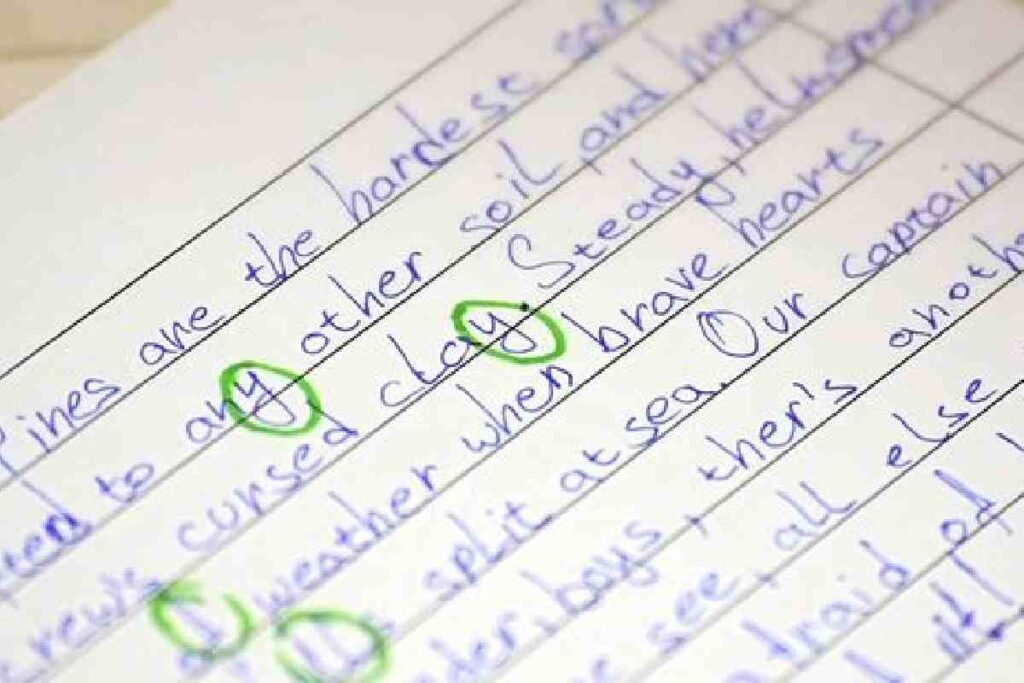 ines are the hardest
to any other soil, and here
cursed clay. Steady, helmsman
weather when brave hearts
split at sea. Our captain
boys, ther's anoth
see, all else
afraid of